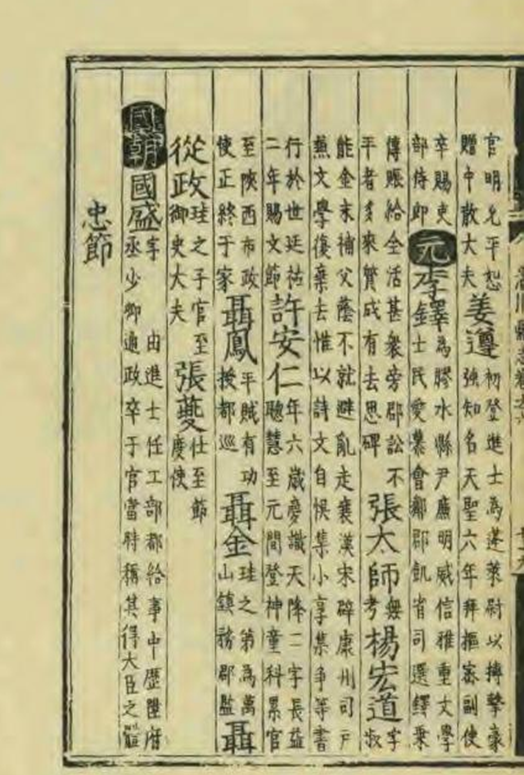 官明允平恕
贈中散大夫
姜遵
初登進士為蓬萊尉以搏擊豪
強知名天聖六年拜樞密副使
卒賜吏
部侍郎
元李鐸
為膠水縣尹廉明威信雅重文學
士民愛慕會鄰郡飢省司選鐸乘
傳賑給全活甚衆旁郡訟不
平者多來質成有去思碑
張太師
無
考
楊宏道
字
叔
能金末補父蔭不就避亂走襄漢宋辟康州司戶
無文學復棄去惟以詩文自娛集小享集爭等書
行於世延祐
二年賜文節
許安仁
年六歲夢識天降二字長益
聰慧至元間登神童科累官
至陝西布政
使正終于家
聶鳳
平賊有功
授都巡
聶金
珪之弟為萬
山鎮務郡監
聶
從政
珪之子官至
御史大夫
張夔
仕至節
度使
國朝國盛
字 由進士任工部都給事中歷陞府
丞少卿通政卒于官當時稱其得大臣之體
忠節